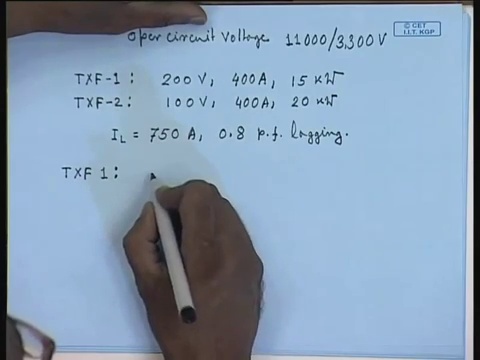 Open circuit voltage 11000/3,300 V
© CET
I.I.T. KGP
TXF-1: 200 V, 400A, 15 kW
TXF-2: 100 V, 400A, 20 kW
IL = 750 A, 0.8 p.f. lagging.
TXF 1: